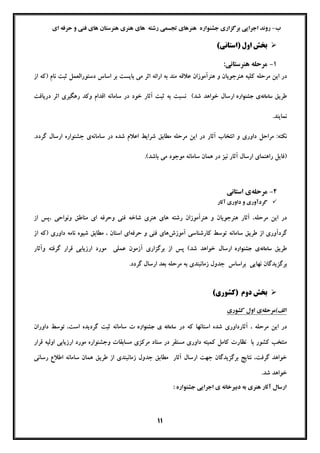 ب- روند اجرایی برگزاری جشنواره هنرهای تجسمی رشته های هنری هنرستان های فنی و حرفه ای
بخش اول (استانی)
۱- مرحله هنرستانی:
در این مرحله کلیه هنرجویان و هنرآموزان علاقه مند به ارائه اثر می بایست بر اساس دستورالعمل ثبت نام (که از
طریق سامانه‌ی جشنواره ارسال خواهد شد) نسبت به ثبت آثار خود در سامانه اقدام وکد رهگیری اثر دریافت
نمایند.
نکته: مراحل داوری و انتخاب آثار در این مرحله مطابق شرایط اعلام شده در سامانه‌ی جشنواره ارسال گردد.
(فایل راهنمای ارسال آثار نیز در همان سامانه موجود می باشد).
۲- مرحله‌ی استانی
✓ گردآوری و داوری آثار
در این مرحله، آثار هنرجویان و هنرآموزان رشته های هنری شاخه فنی وحرفه ای مناطق ونواحی ،پس از
گردآوری از طریق سامانه توسط کارشناسی آموزش‌های فنی و حرفه‌ای استان ، مطابق شیوه نامه داوری (که از
طریق سامانه‌ی جشنواره ارسال خواهد شد) پس از برگزاری آزمون عملی مورد ارزیابی قرار گرفته وآثار
برگزیدگان نهایی براساس جدول زمانبندی به مرحله بعد ارسال گردد.
بخش دوم (کشوری)
الف)مرحله‌ی اول کشوری
در این مرحله ، آثارداوری شده استانها که در سامانه ی جشنواره ت سامانه ثبت گردیده است، توسط داوران
منتخب کشور با نظارت کامل کمیته داوری مستقر در ستاد مرکزی مسابقات وجشنواره مورد ارزیابی اولیه قرار
خواهد گرفت. نتایج برگزیدگان جهت ارسال آثار مطابق جدول زمانبندی از طریق همان سامانه اطلاع رسانی
خواهد شد.
ارسال آثار هنری به دبیرخانه ی اجرایی جشنواره :
۱۱